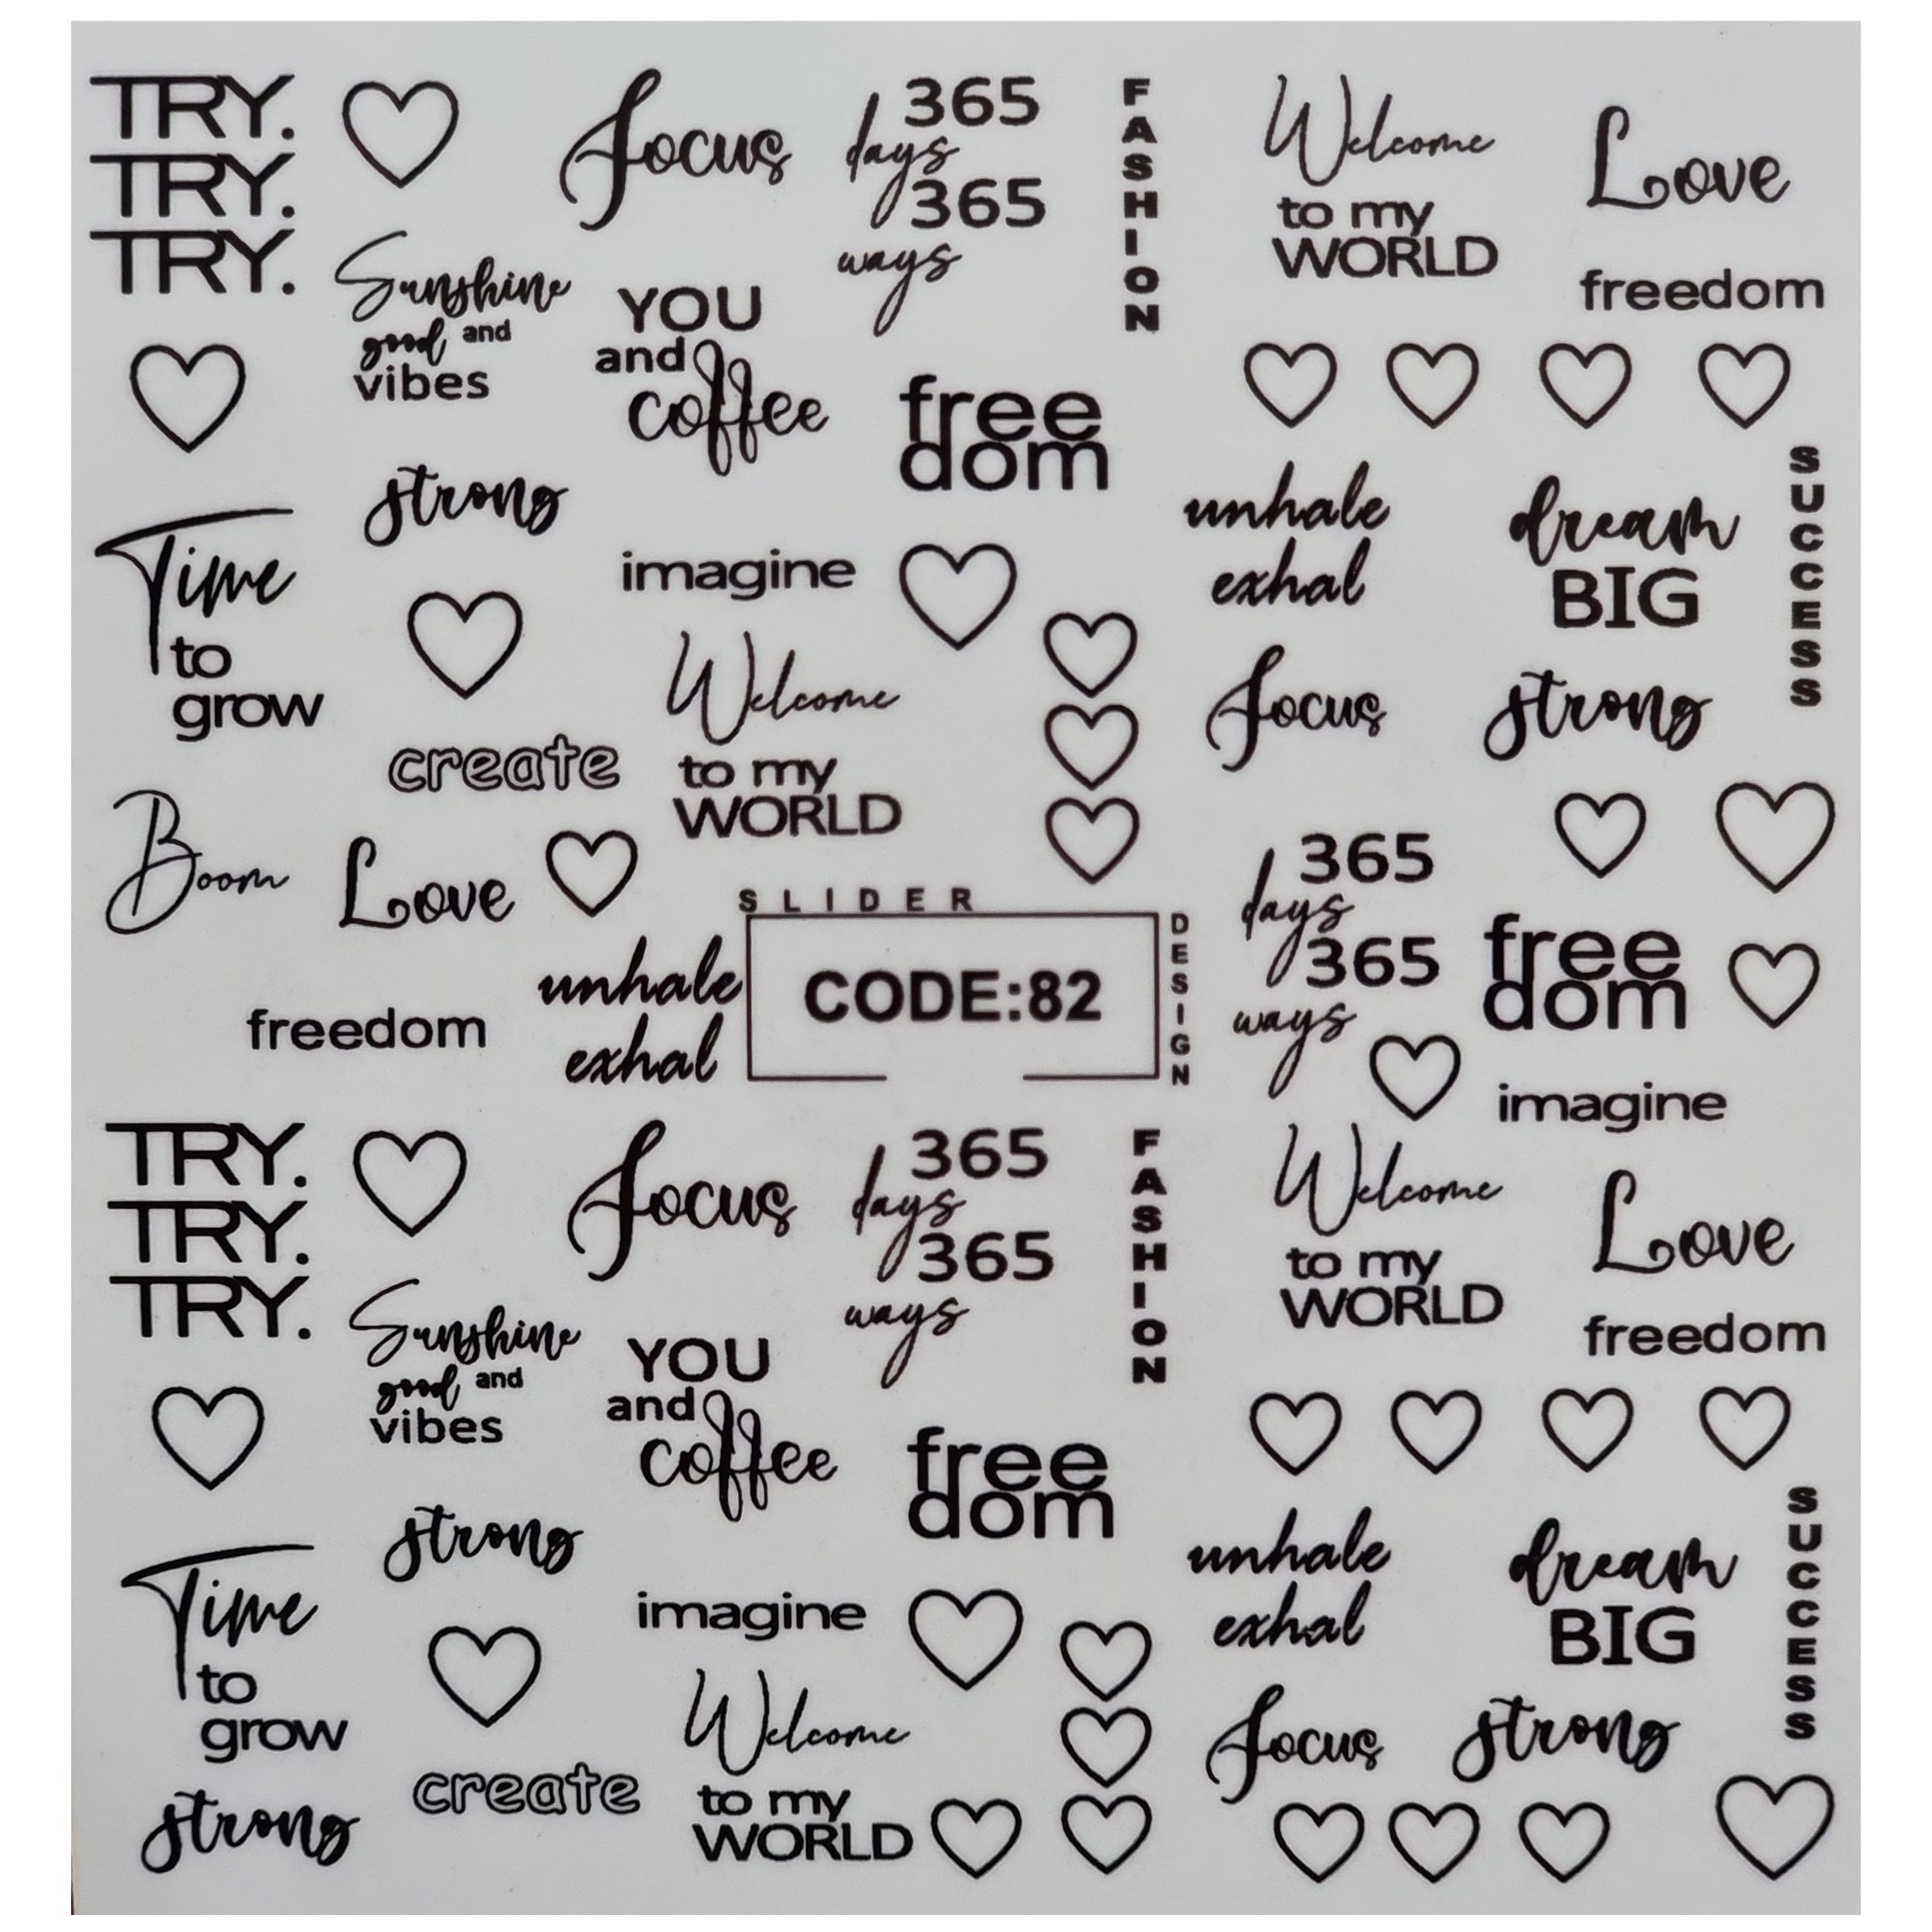 TRY.
TRY.
TRY.
Focus
365
days
365
ways
FASHION
Welcome
to my
WORLD
Love
freedom
Sunshine
good and
vibes
YOU
and
coffee
free
dom
strong
unhale
exhal
dream
BIG
SUCCESS
Time
to
grow
imagine
Welcome
to my
WORLD
Focus
strong
create
Boom
Love
365
days
365
ways
free
dom
SLIDER
DESIGN
CODE:82
unhale
exhal
freedom
imagine
TRY.
TRY.
TRY.
Focus
365
days
365
ways
FASHION
Welcome
to my
WORLD
Love
freedom
Sunshine
good and
vibes
YOU
and
coffee
free
dom
strong
unhale
exhal
dream
BIG
SUCCESS
Time
to
grow
imagine
Welcome
to my
WORLD
Focus
strong
create
strong